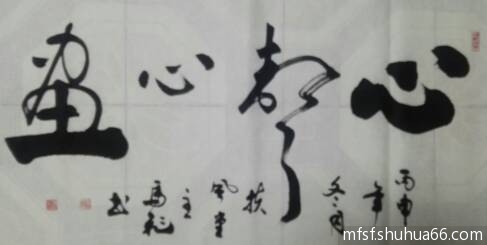 心聲心畫
丙申年冬月扶風堂主馬书
mfsfshuhua66.com